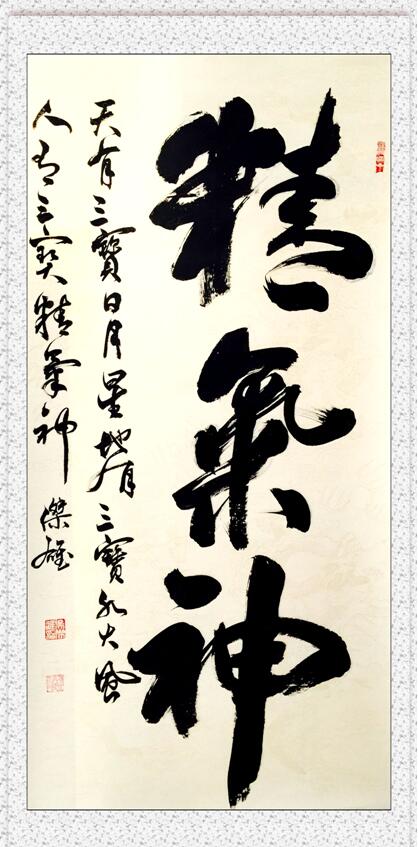 精氣神
天有三寶日月星地有三寶水火風
人有三寶精氣神
傑雄